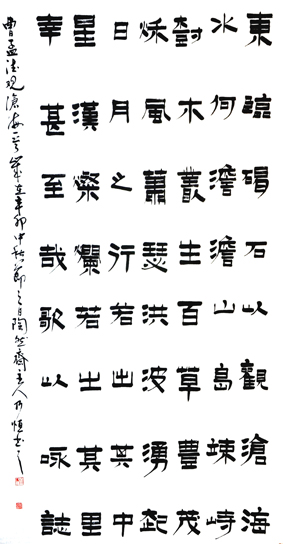 東臨碣石以觀滄海
水何澹澹山島竦峙
樹木叢生百草豐茂
秌風蕭瑟洪波湧起
日月之行若出其中
星漢燦爛若出其里
幸甚至哉歌以咏誌
曹孟德观滄海一首歲在辛卯中秋節之日陶然齋主人乃恒书